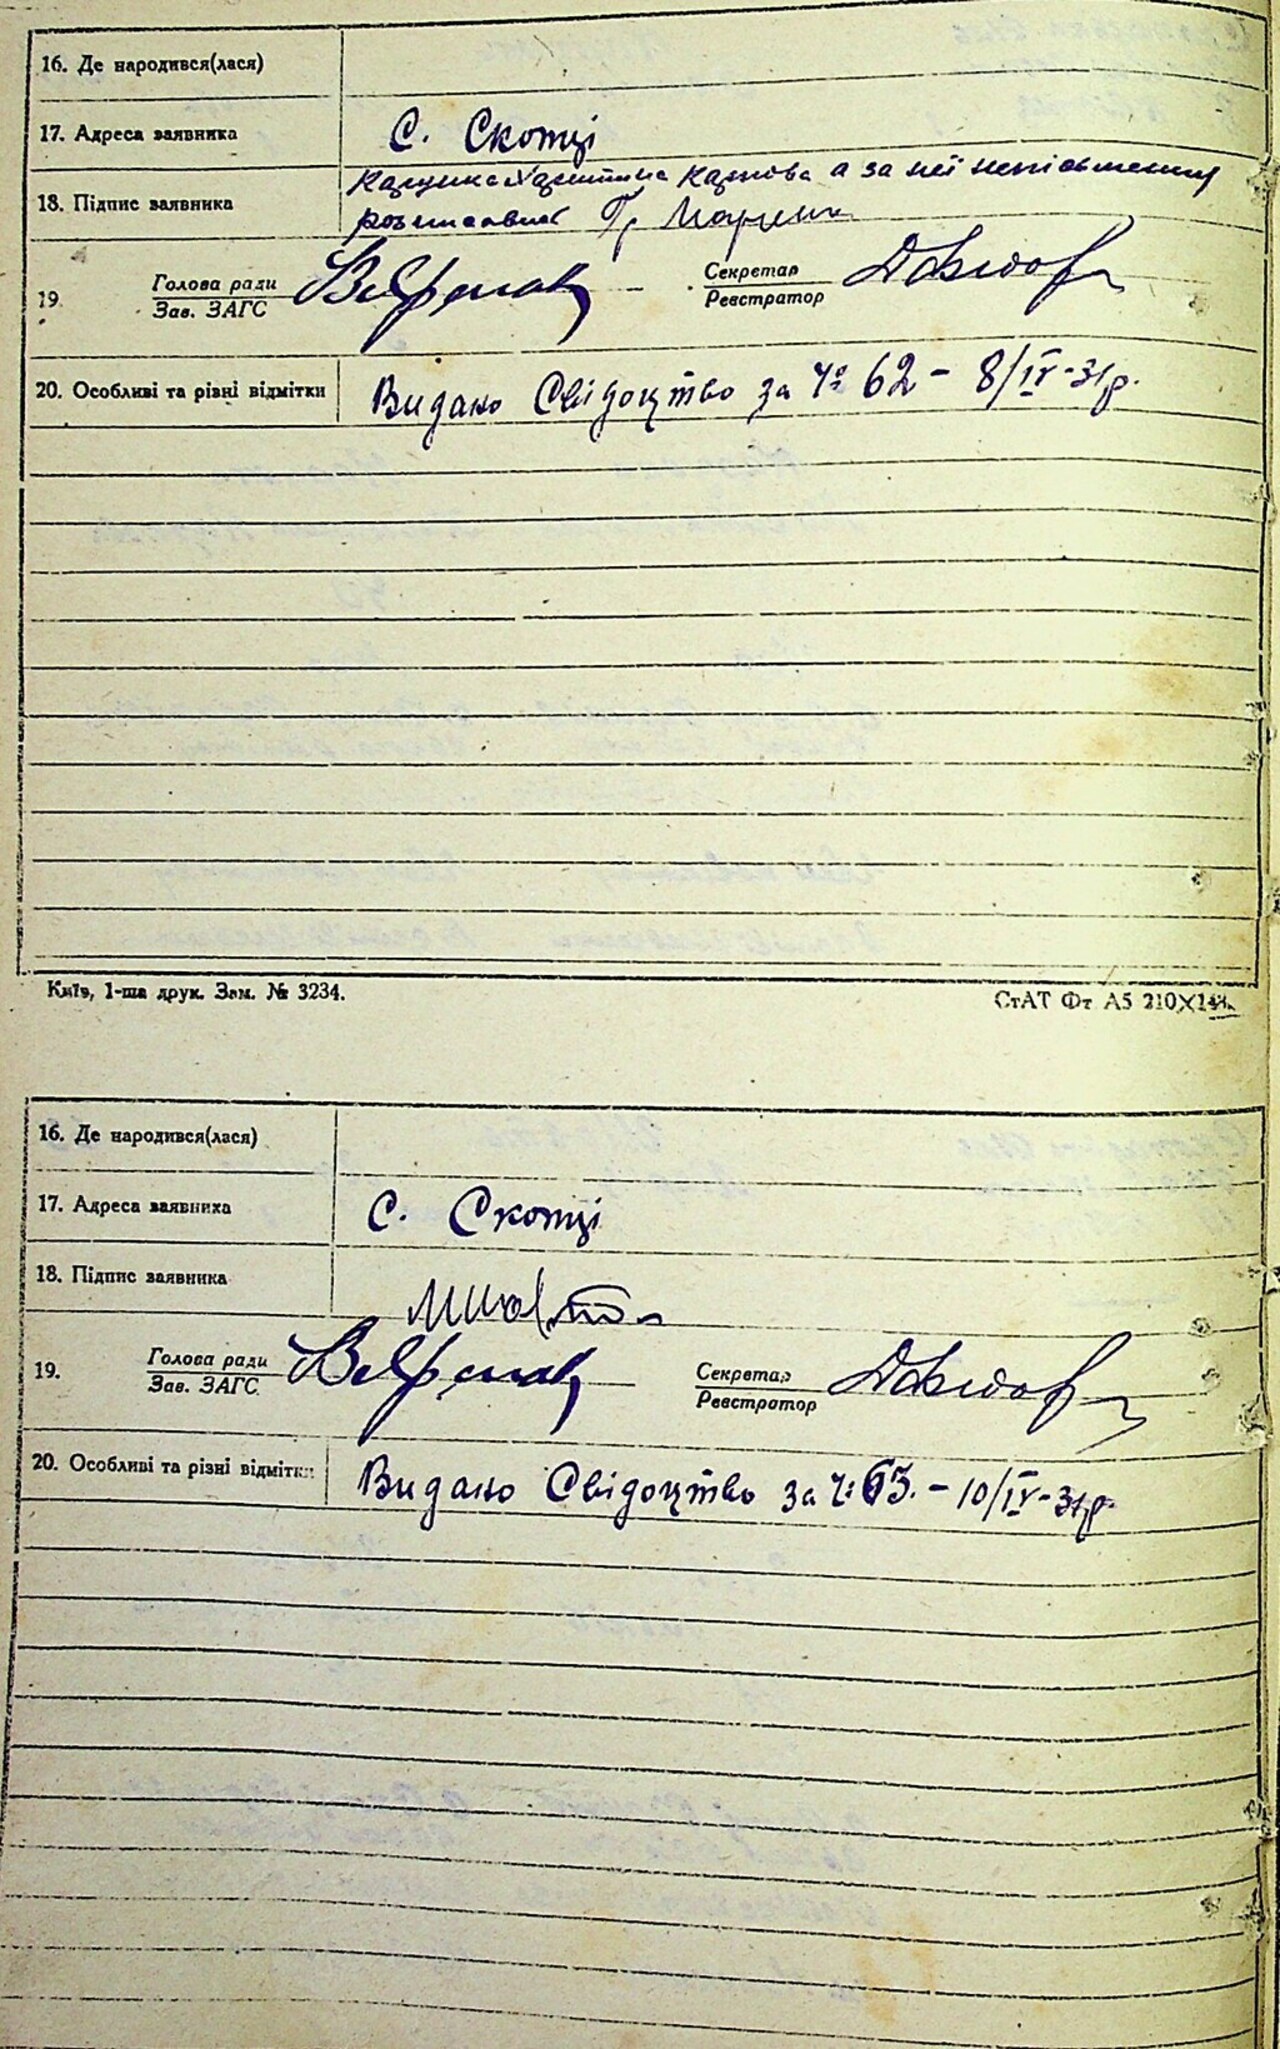 16. Де народився(лася)
17. Адреса заявника
с. Скотці
18. Підпис заявника
а за неї неписьменну
розписався Гр
19.
Голова ради
Зав. ЗАГС
Секретар
Реєстратор
20. Особливі та різні відмітки
Видано Свідоцтво за Ч: 62 - 8/IV-31р.
Київ, 1-ша друк. Зам. № 3234.
СтАТ Фт А5 210X148.
16. Де народився(лася)
17. Адреса заявника
с. Скотці
18. Підпис заявника
19.
Голова ради
Зав. ЗАГС
Секретар
Реєстратор
20. Особливі та різні відмітки
Видано Свідоцтво за Ч: 63. - 10/IV-31р.